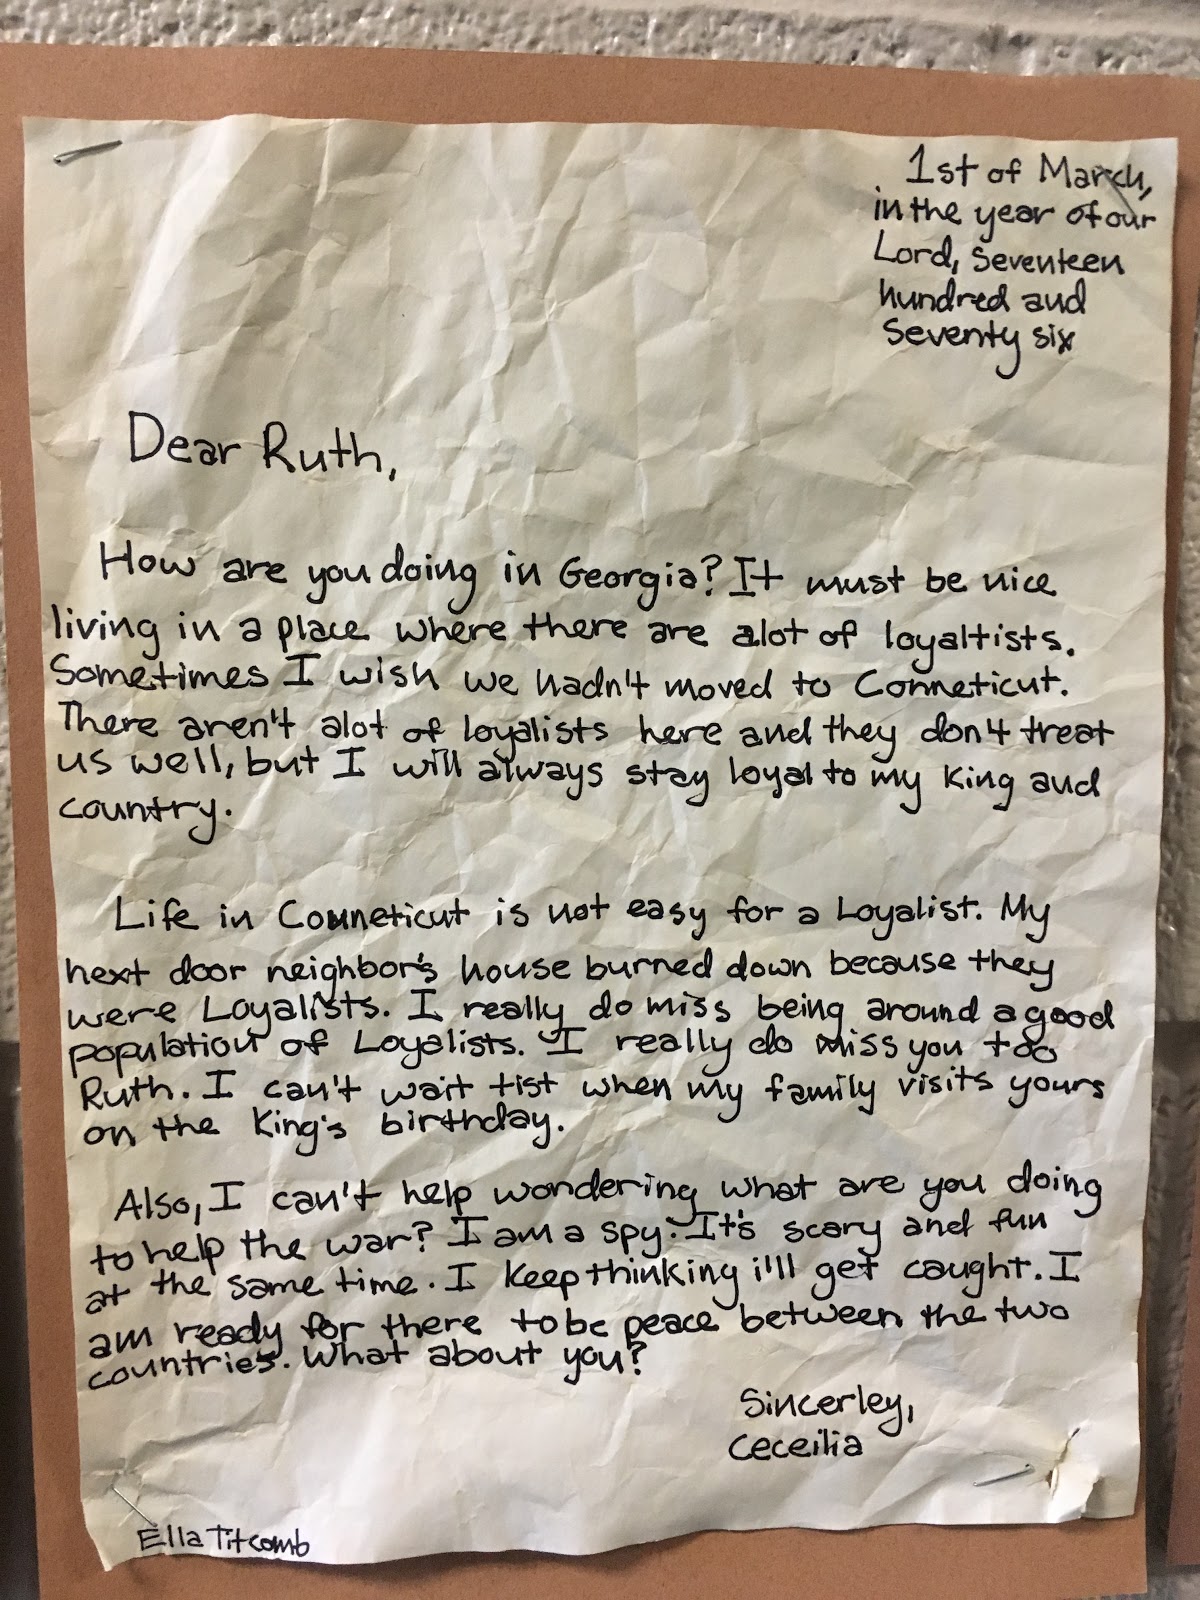 1st of March,
in the year of our
Lord, Seventeen
hundred and
Seventy six
Dear Ruth,
How are you doing in Georgia? It must be nice
living in a place where there are alot of loyaltists.
Sometimes I wish we hadn't moved to Conneticut.
There aren't alot of loyalists here and they don't treat
us well, but I will always stay loyal to my King and
country.
Life in Conneticut is not easy for a Loyalist. My
next door neighbor's house burned down because they
were Loyalists. I really do miss being around a good
population of Loyalists. I really do miss you too
Ruth. I can't wait tist when my family visits yours
on the King's birthday.
Also, I can't help wondering what are you doing
to help the war? I am a spy. It's scary and fun
at the same time. I Keep thinking i'll get caught. I
am ready for there to be peace between the two
countries. What about you?
Sincerley,
Ceceilia
Ella Titcomb